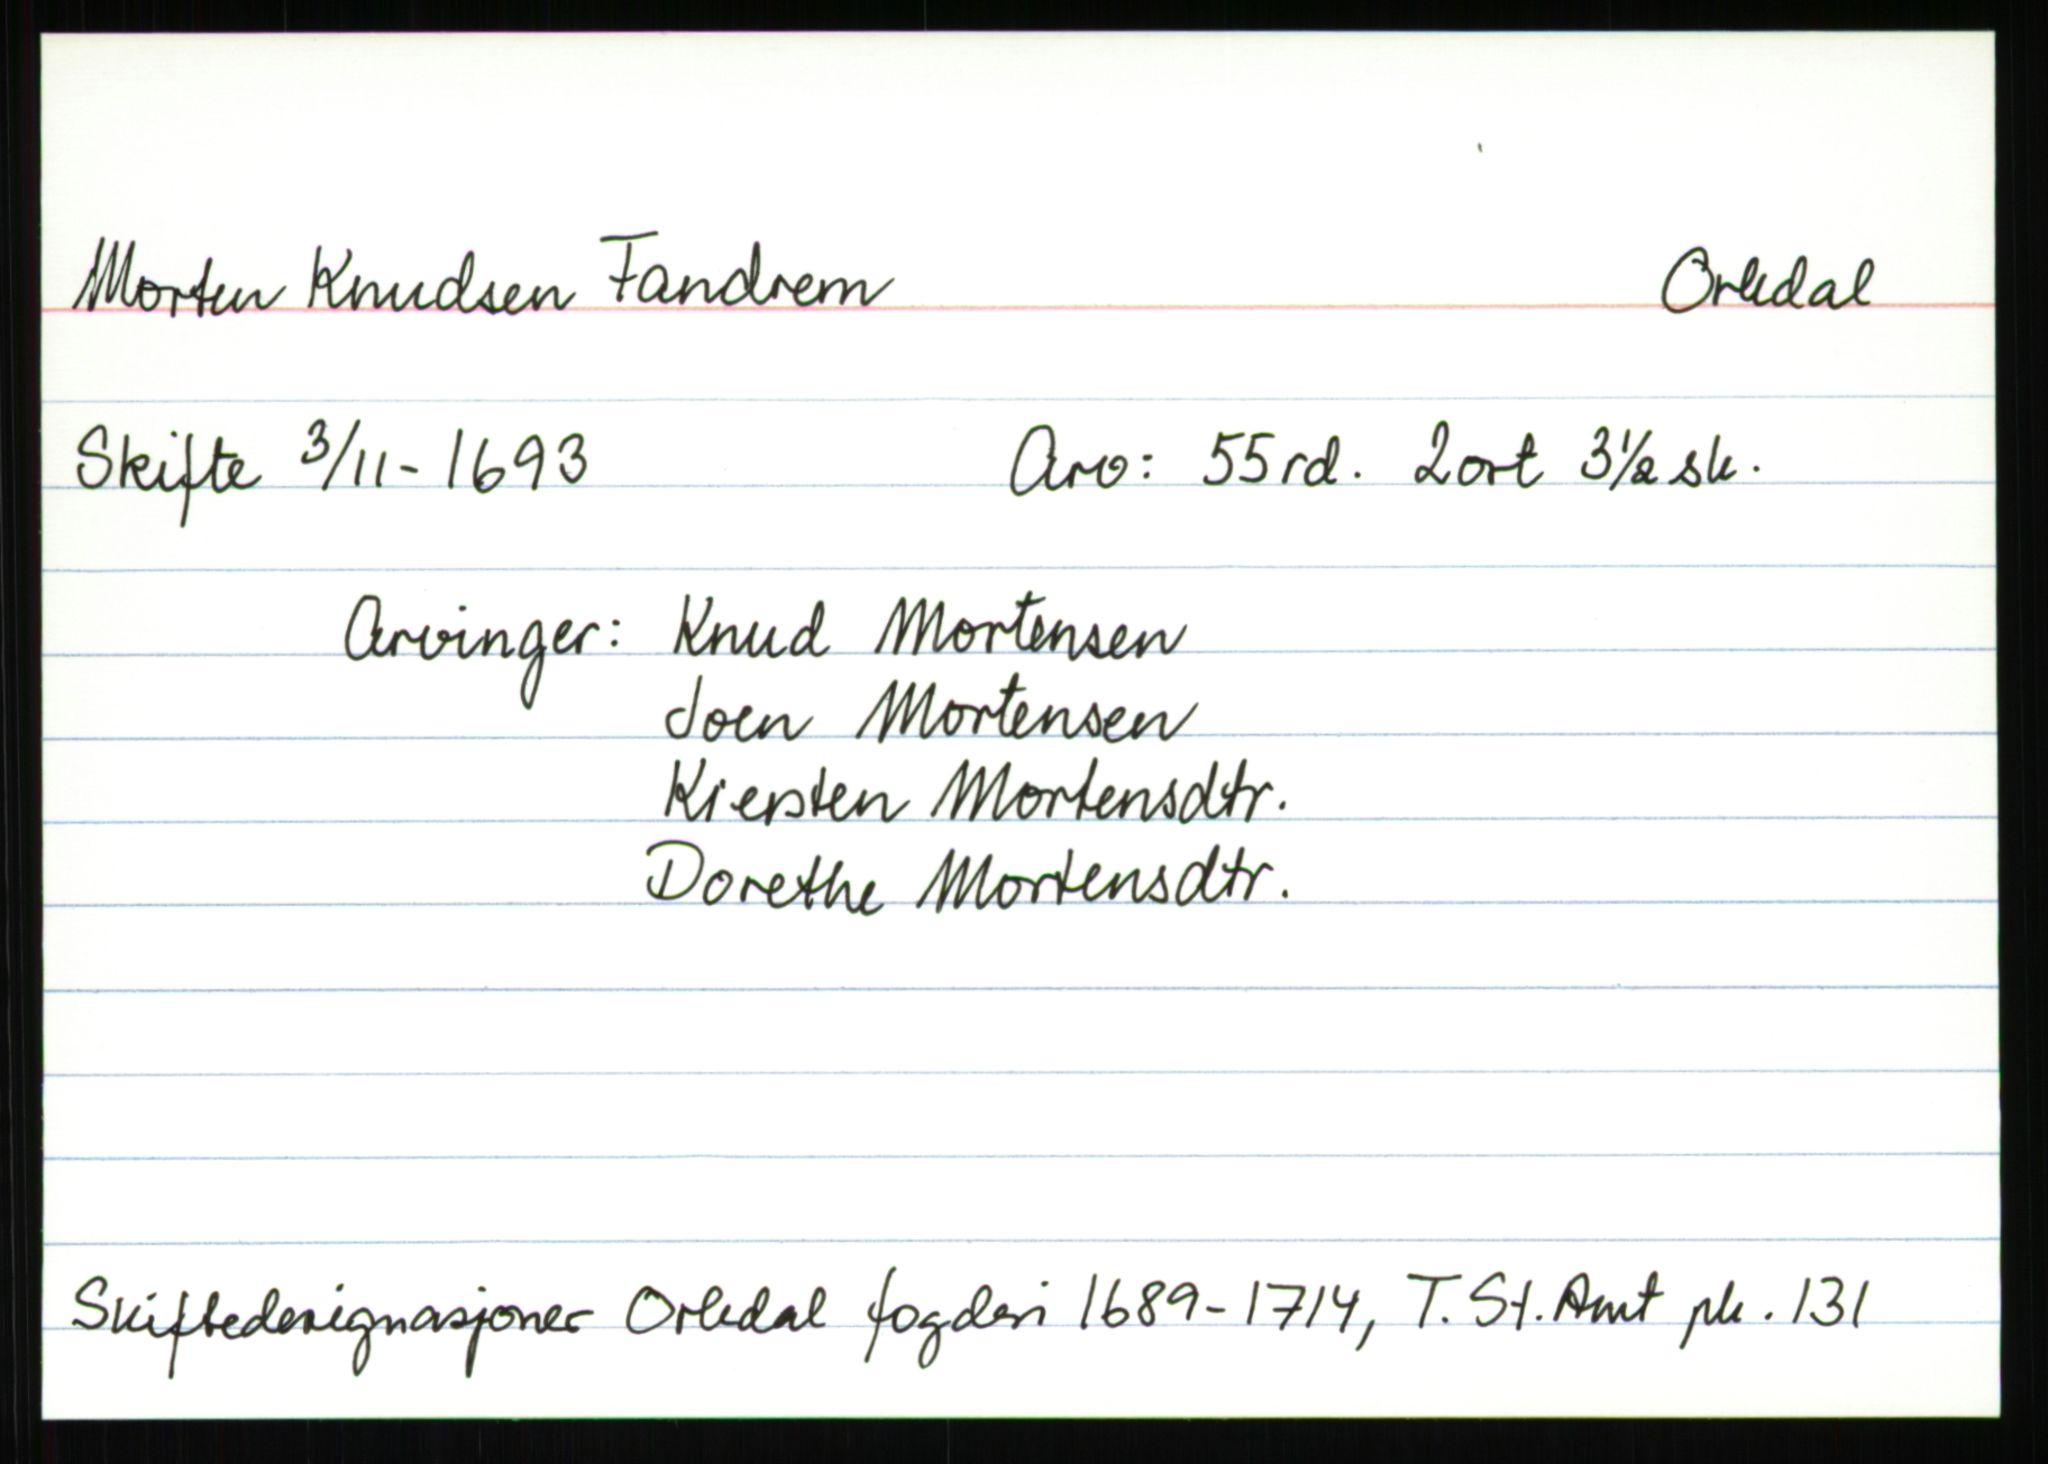 Morten Knudsen Fandrem Orkdal
Skifte 3/11-1693 Arv: 55 rd. 2 ort 3½ sk.
Arvinger: Knud Mortensen
Joen Mortensen
Kiersten Mortensdtr.
Dorethe Mortensdtr.
Skiftedesignasjoner Orkdal fogderi 1689-1714, T. St. Amt pk. 131